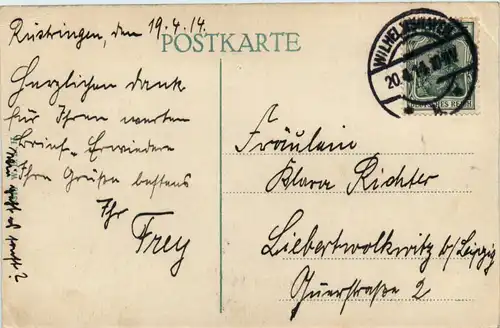 Rüstringen, den 19.4.14.
POSTKARTE
Herzlichen dank
für Ihren werten
Brief. Erwiedere
Ihre Grüße bestens
Ihr
Frey
WILHELMSHAVEN
20.4.14.
DEUTSCHES REICH
Fräulein
Klara Richter
Liebertwolkwitz b/Leipzig
Querstraße 2